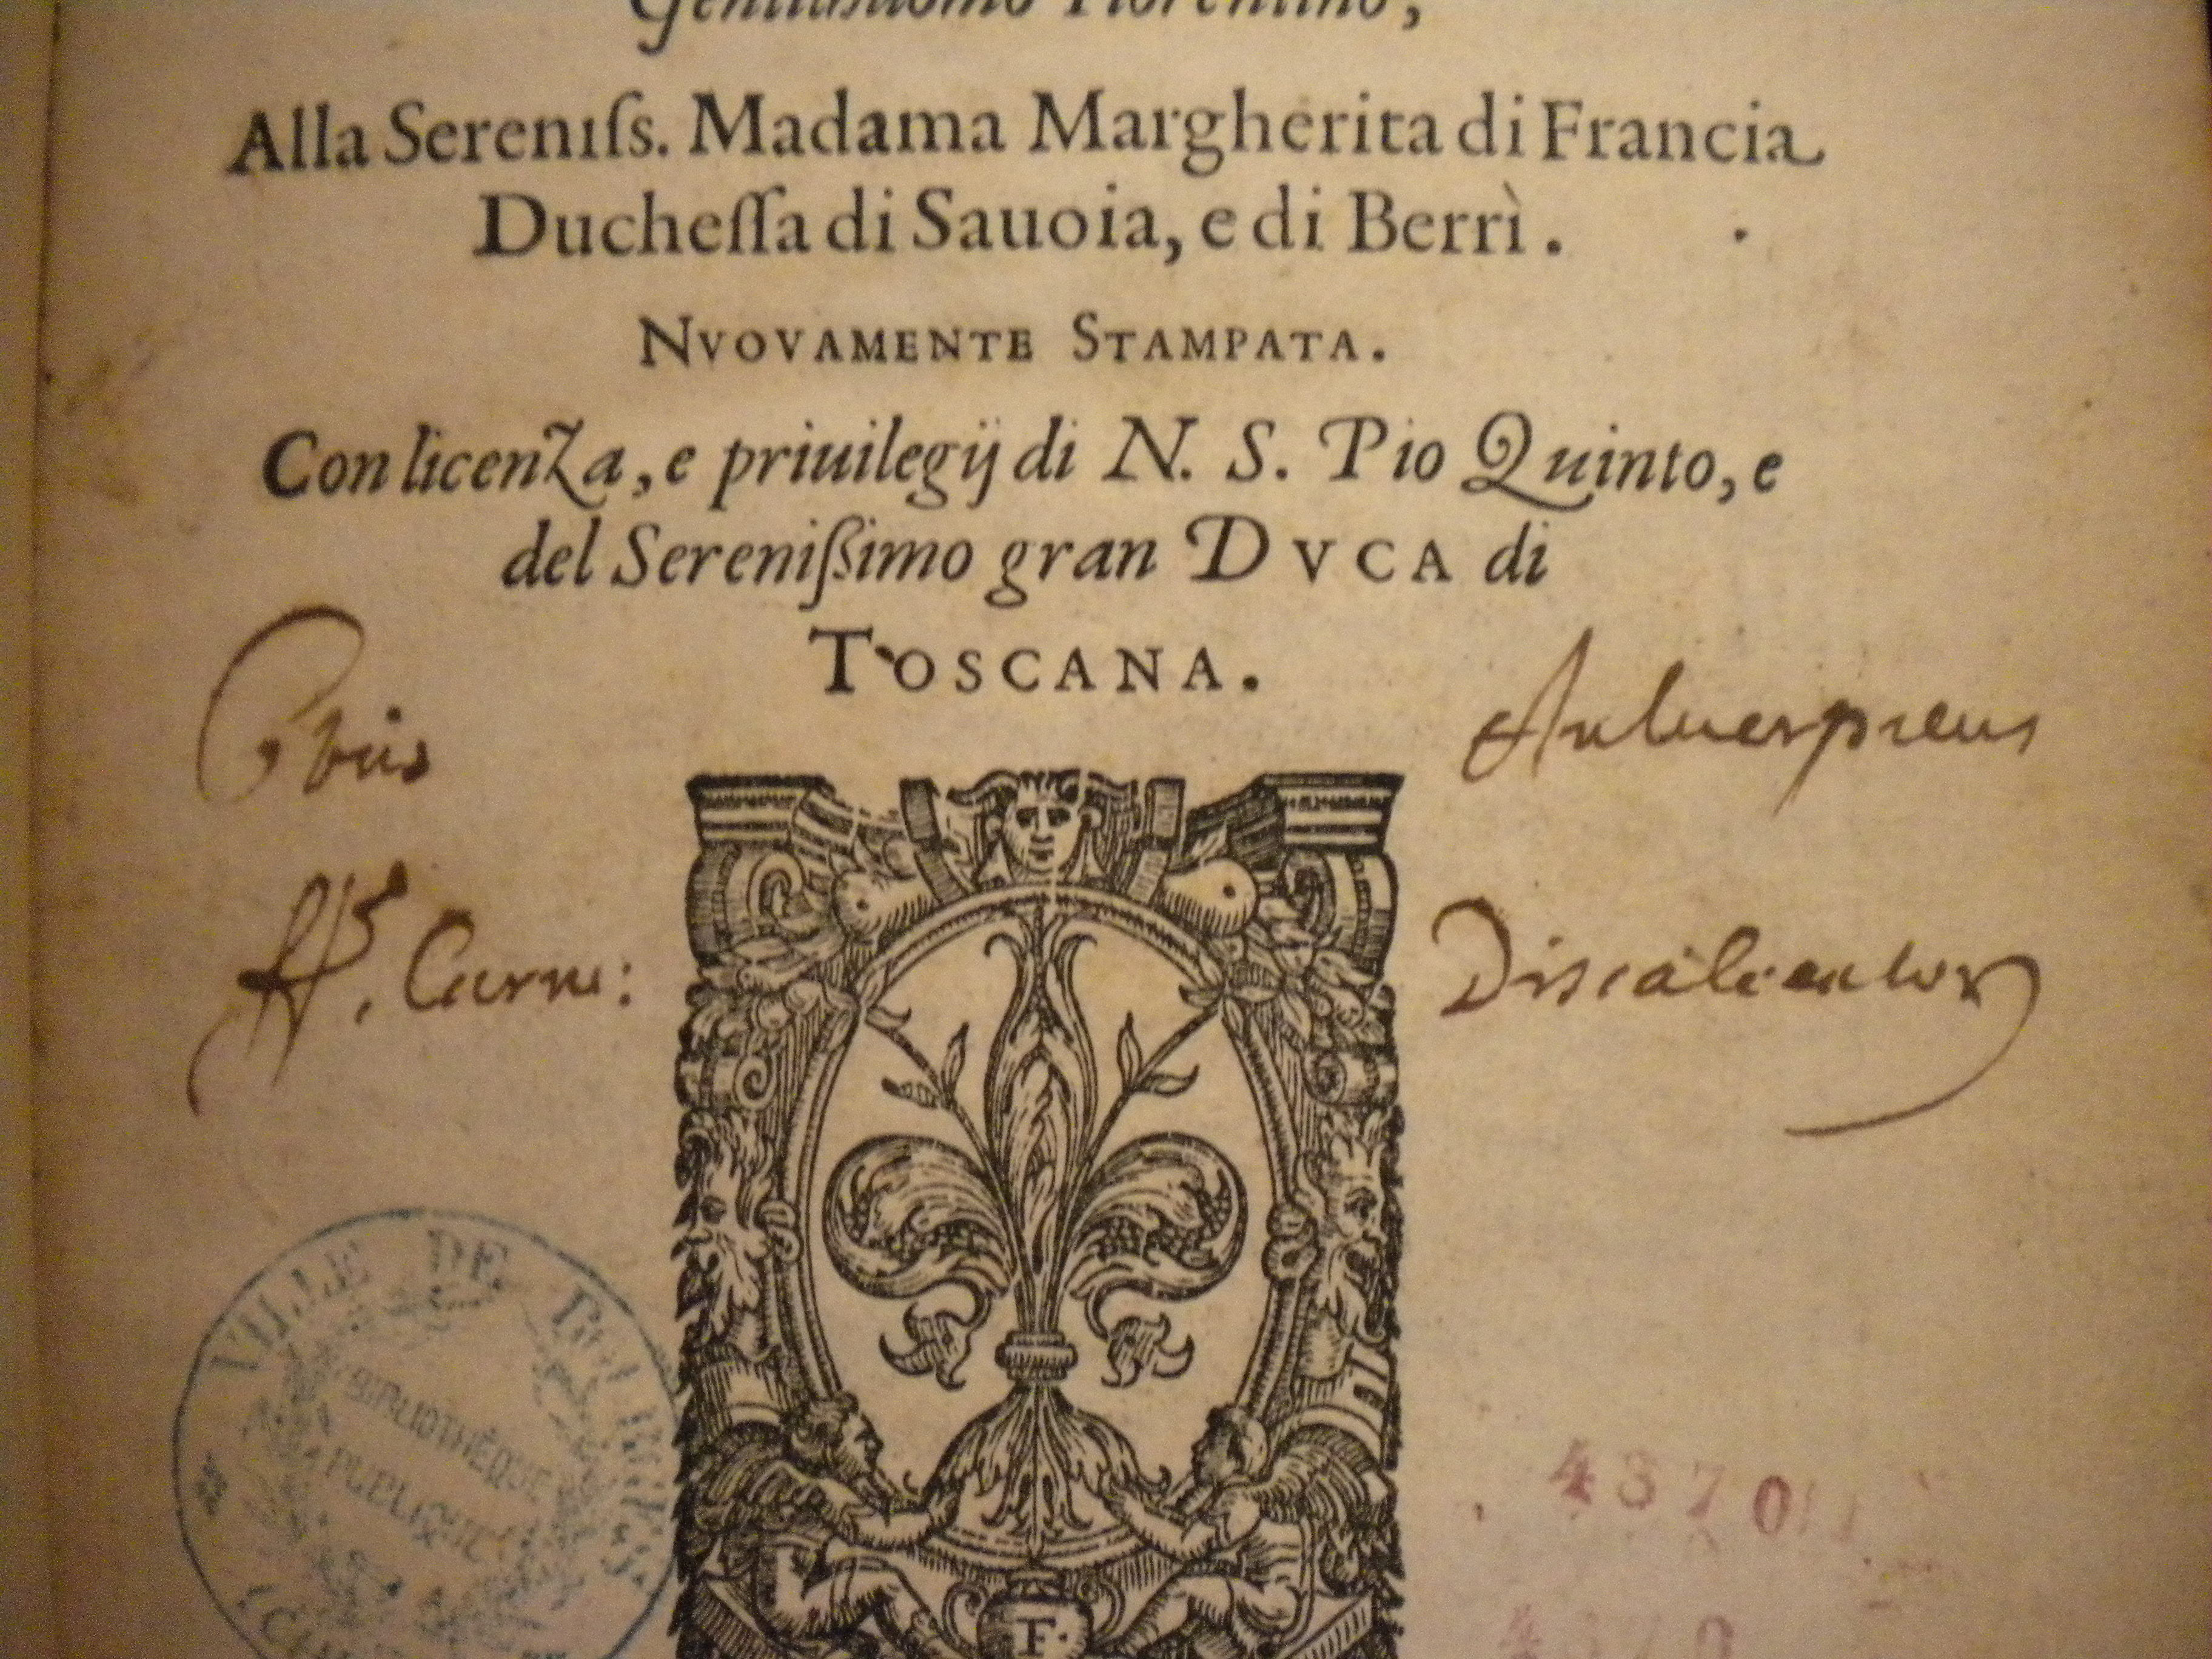 Gentilhuomo Fiorentino,
Alla Sereniſs. Madama Margherita di Francia
Ducheſſa di Sauoia, e di Berrì.
NVOVAMENTE STAMPATA.
Con licenza, e priuilegij di N. S. Pio Quinto, e
del Sereniſsimo gran DVCA di
TOSCANA.
Antuerpiens
ff. Carm: Discalceator
VILLE DE
BIBLIOTHÈQUE
PUBLIQUE
F.
4370